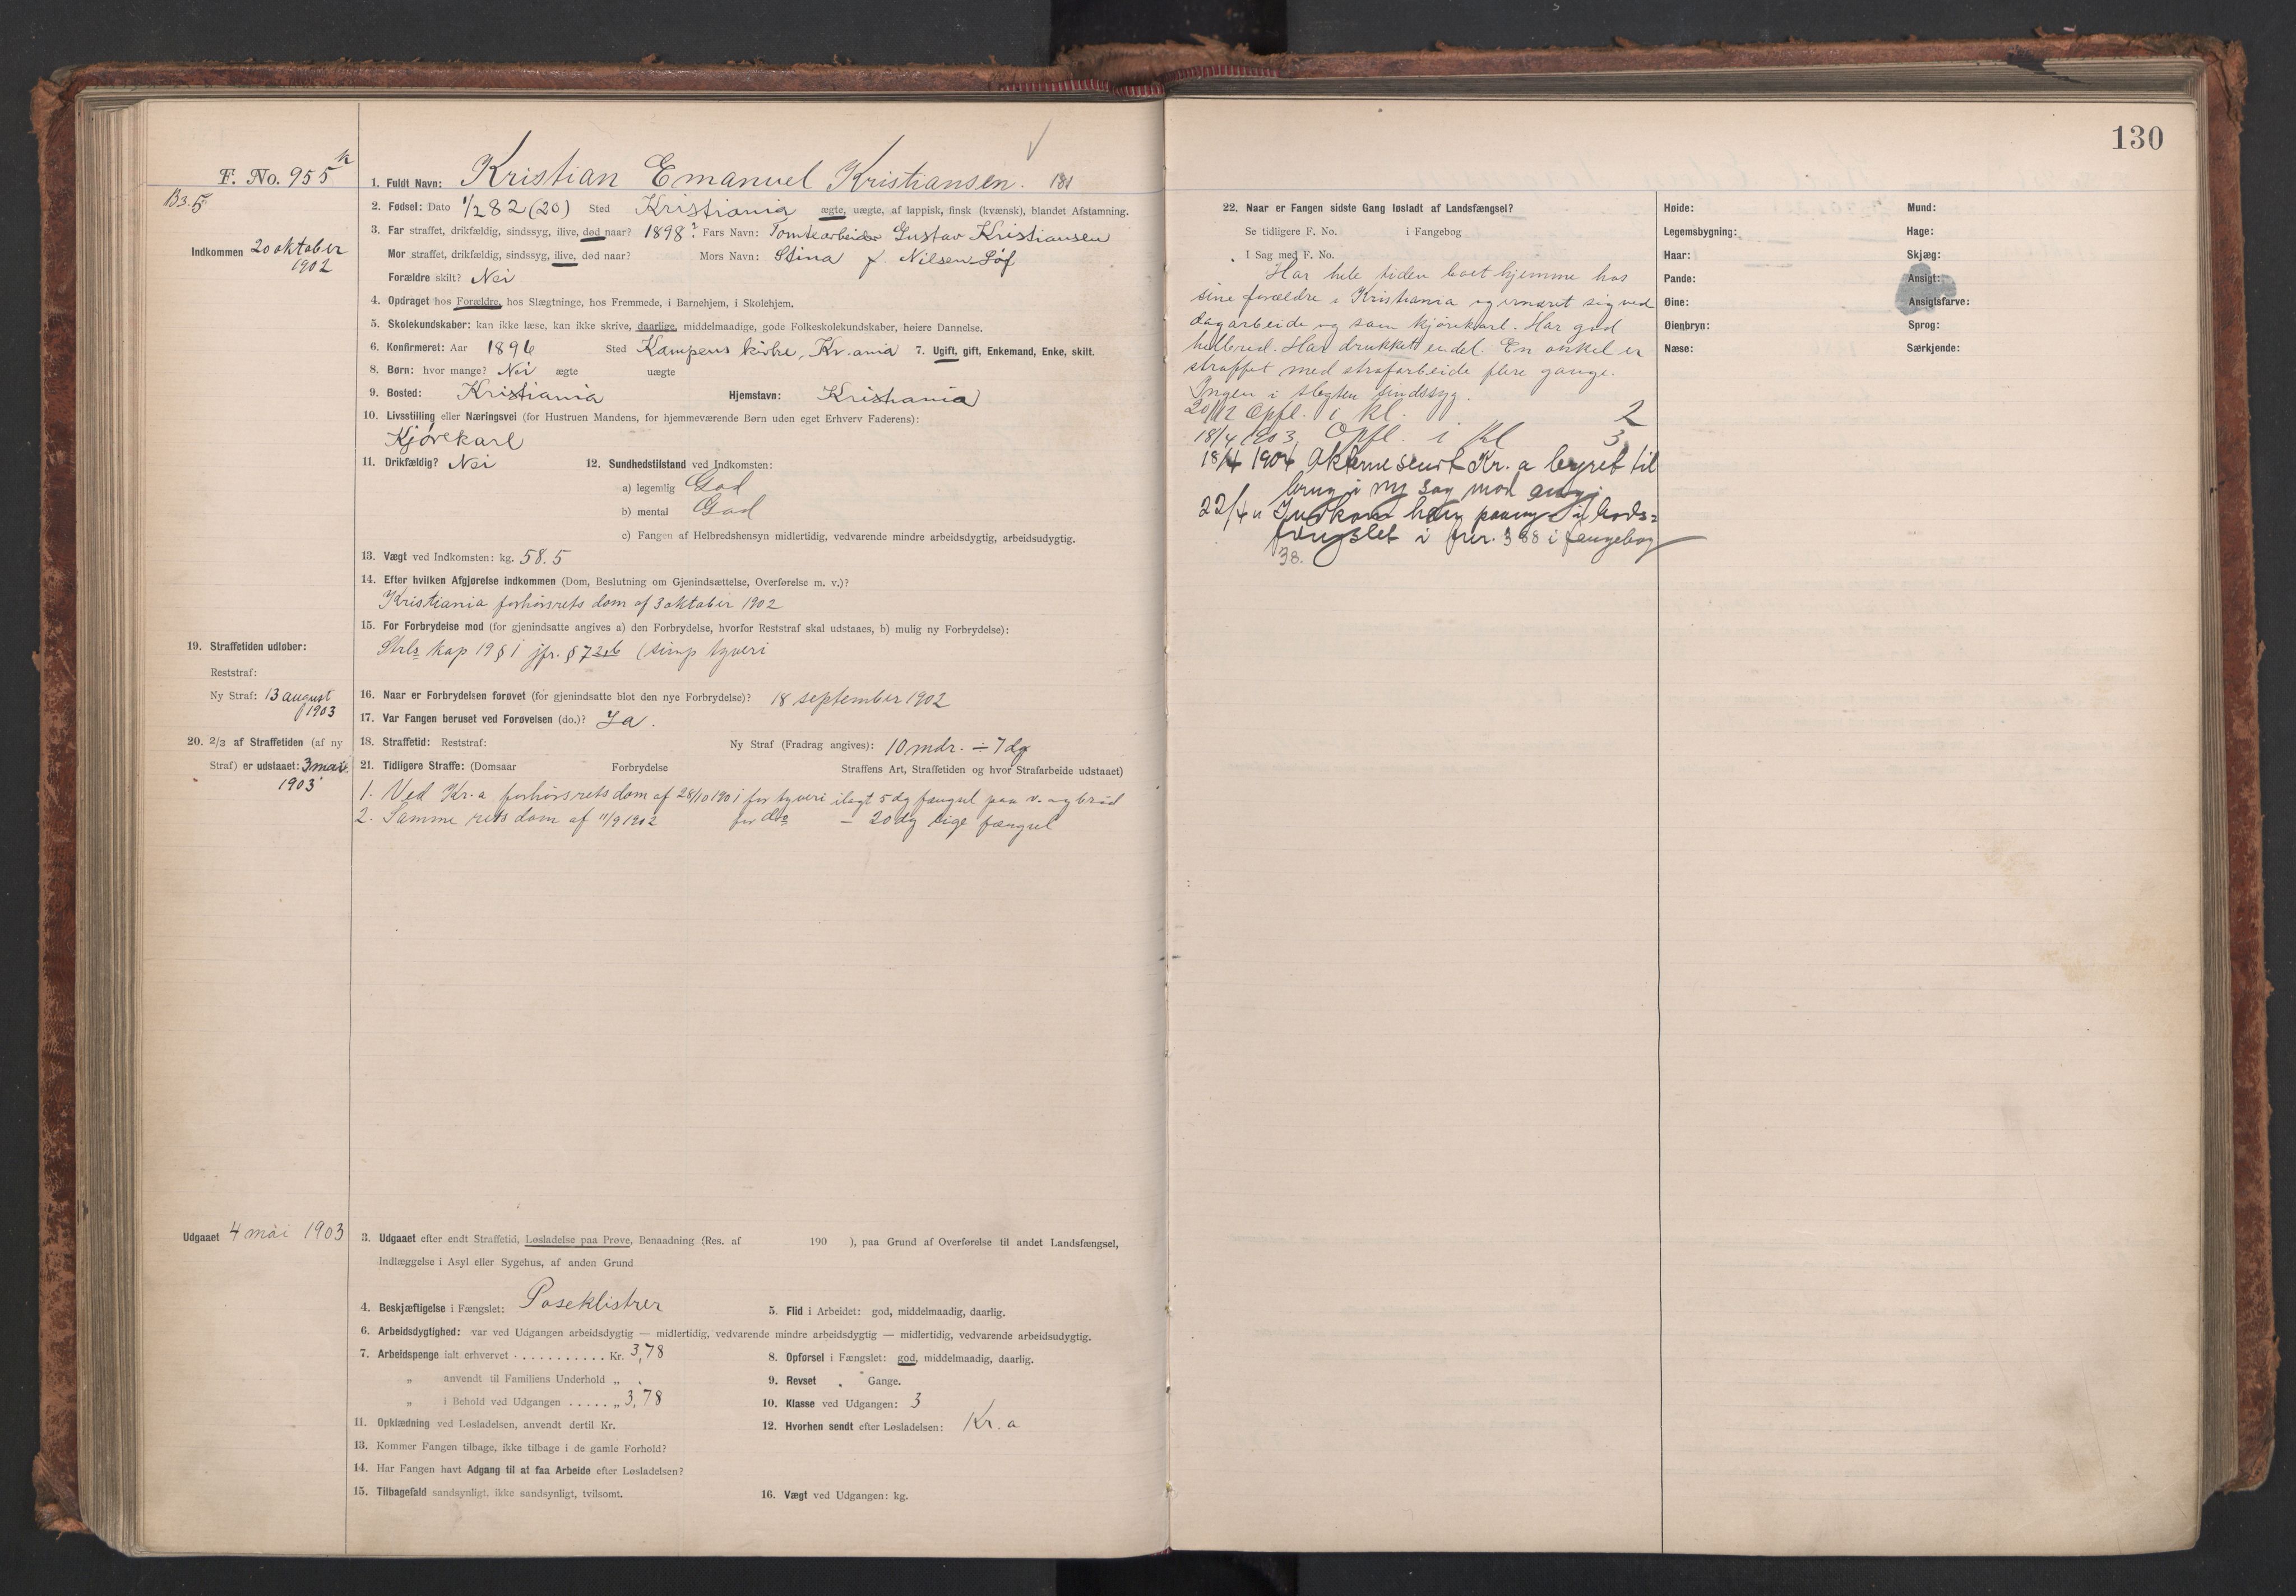 130
F. No. 955
B3.5
Indkommen 20 oktober
1902
1. Fuldt Navn: Kristian Emanuel Kristiansen. 181
2. Fødsel: Dato 1/2 82 (20) Sted Kristiania ægte, uægte, af lappisk, finsk (kvænsk), blandet Afstamning.
3. Far straffet, drikfældig, sindssyg, ilive, død naar? 1898? Fars Navn: Tomtearbeider Gustav Kristiansen
Mor straffet, drikfældig, sindssyg, ilive, død naar? Mors Navn: Stina f. Nilsen Löf
Forældre skilt? Nei
4. Opdraget hos Forældre, hos Slægtninge, hos Fremmede, i Barnehjem, i Skolehjem.
5. Skolekundskaber: kan ikke læse, kan ikke skrive, daarlige, middelmaadige, gode Folkeskolekundskaber, høiere Dannelse.
6. Konfirmeret: Aar 1896 Sted Kampens kirke, Kr.ania 7. Ugift, gift, Enkemand, Enke, skilt.
8. Børn: hvor mange? Nei ægte uægte
9. Bosted: Kristiania Hjemstavn: Kristiania
10. Livsstilling eller Næringsvei (for Hustruen Mandens, for hjemmeværende Børn uden eget Erhverv Faderens):
Kjørekarl
11. Drikfældig? Nei 12. Sundhedstilstand ved Indkomsten:
a) legemlig God
b) mental God
c) Fangen af Helbredshensyn midlertidig, vedvarende mindre arbeidsdygtig, arbeidsudygtig.
13. Vægt ved Indkomsten: kg. 58.5
14. Efter hvilken Afgjørelse indkommen (Dom, Beslutning om Gjenindsættelse, Overførelse m. v.)?
Kristiania forhørsrets dom af 3 oktober 1902
15. For Forbrydelse mod (for gjenindsatte angives a) den Forbrydelse, hvorfor Reststraf skal udstaaes, b) mulig ny Forbrydelse):
Strls kap 19 § 1 jfr. § 7 2.b (simp tyveri
19. Straffetiden udløber:
Reststraf:
Ny Straf: 13 august
1903
16. Naar er Forbrydelsen forøvet (for gjenindsatte blot den nye Forbrydelse)? 18 september 1902
17. Var Fangen beruset ved Forøvelsen (do.)? Ja.
20. 2/3 af Straffetiden (af ny
Straf) er udstaaet: 3 mai
1903
18. Straffetid: Reststraf: Ny Straf (Fradrag angives): 10 mdr. ÷ 7 dg
21. Tidligere Straffe: (Domsaar Forbrydelse Straffens Art, Straffetiden og hvor Strafarbeide udstaaet)
1. Ved Kr.a forhørsrets dom af 28/10 1901 for tyveri ilagt 5 dg fængsel paa v. og brød
2. Samme rets dom af 11/9 1902 for do – 20 dg lige fængsel
Udgaaet 4 mai 1903
3. Udgaaet efter endt Straffetid, Løsladelse paa Prøve, Benaadning (Res. af 190 ), paa Grund af Overførelse til andet Landsfængsel,
Indlæggelse i Asyl eller Sygehus, af anden Grund
4. Beskjæftigelse i Fængslet: Poseklistrer 5. Flid i Arbeidet: god, middelmaadig, daarlig.
6. Arbeidsdygtighed: var ved Udgangen arbeidsdygtig — midlertidig, vedvarende mindre arbeidsdygtig — midlertidig, vedvarende arbeidsudygtig.
7. Arbeidspenge ialt erhvervet . . . . . . . . . . . Kr. 3,78 8. Opførsel i Fængslet: god, middelmaadig, daarlig.
„ anvendt til Familiens Underhold „ . 9. Revset „ Gange.
„ i Behold ved Udgangen . . . . . „ 3,78 10. Klasse ved Udgangen: 3
11. Opklædning ved Løsladelsen, anvendt dertil Kr. 12. Hvorhen sendt efter Løsladelsen: Kr.a
13. Kommer Fangen tilbage, ikke tilbage i de gamle Forhold?
14. Har Fangen havt Adgang til at faa Arbeide efter Løsladelsen?
15. Tilbagefald sandsynligt, ikke sandsynligt, tvilsomt. 16. Vægt ved Udgangen: kg.
22. Naar er Fangen sidste Gang løsladt af Landsfængsel?
Se tidligere F. No. i Fangebog
I Sag med F. No.
Har hele tiden boet hjemme hos
sine forældre i Kristiania og ernæret sig ved
dagarbeide og som kjørekarl. Har god
helbred. Har drukket endel. En onkel er
straffet med strafarbeide flere gange.
Ingen i slegten sindssyg.
20/12 Opfl. i kl. 2
18/4 1903 Opfl. i Kl 3
18/4 1904 Akterne sendt Kr.a byret til
brug i ny sag mod ang.
22/4 " Indkom han paany til bods=
fængslet i fnr. 388 i fangebog
38.
Høide: Mund:
Legemsbygning: Hage:
Haar: Skjæg:
Pande: Ansigt:
Øine: Ansigtsfarve:
Øienbryn: Sprog:
Næse: Særkjende: